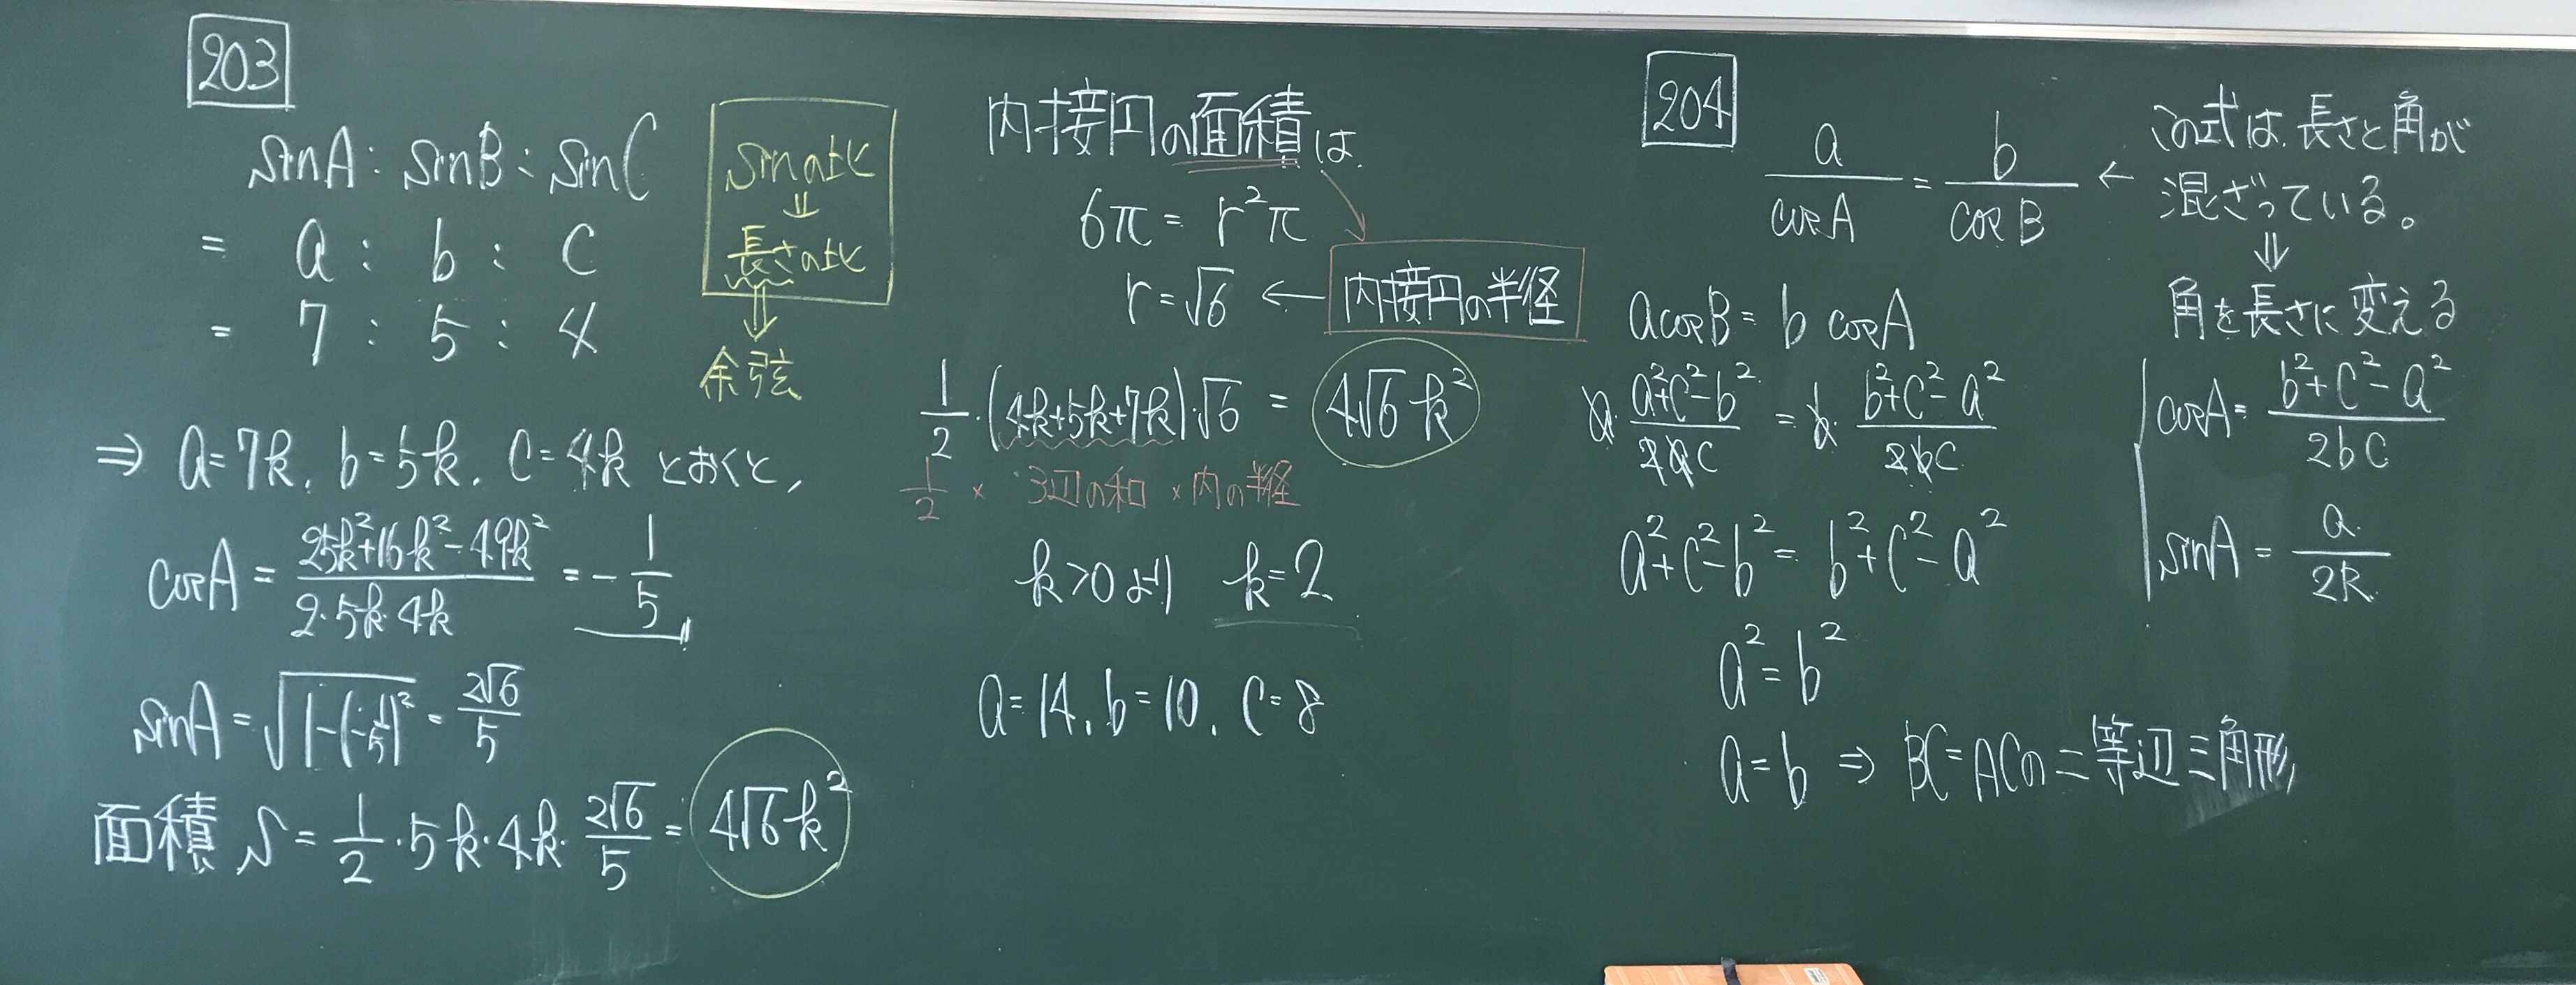 203
sinA : sinB : sinC
= a : b : c
= 7 : 5 : 4
sinの比
⇓
長さの比
⇓
余弦
⇒ a=7k, b=5k, c=4k とおくと,
cosA = (25k²+16k²-49k²)/(2·5k·4k) = -1/5
sinA = √(1-(-1/5)²) = 2√6/5
面積 S = 1/2·5k·4k·2√6/5 = 4√6k²
内接円の面積は.
6π = r²π
r = √6 ← 内接円の半径
1/2·(4k+5k+7k)·√6 = 4√6k²
1/2 × 3辺の和 × 内の半径
k>0より k=2
a=14, b=10, c=8
204
a/cosA = b/cosB ← この式は、長さと角が
混ざっている。
⇓
角を長さに変える
cosA = (b²+c²-a²)/2bc
sinA = a/2R
acosB = b cosA
a·(a²+c²-b²)/2ac = b·(b²+c²-a²)/2bc
a²+c²-b² = b²+c²-a²
a² = b²
a = b ⇒ BC=ACの二等辺三角形